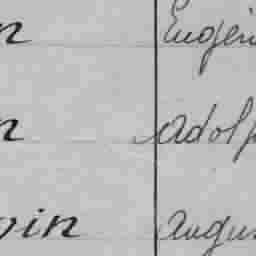 n Eugén
n Adolp
oin Augus